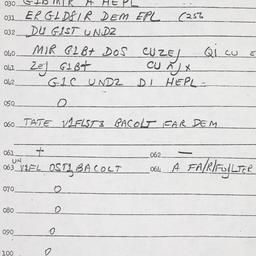 030 GIB MIR A HEPL
031 ERGLD8IR DEM EPL (256
032 DU GIST UNDZ
040 MIR GIBT DOS CUZEJ Qi CU E
041 ZEJ GIBT CU AJX
042 GIC UNDZ DI HEPL=
050 0
060 TATE VIFLST3 BACOLT FAR DEM
061 + 062 —
063 VIFL OST3 BACOLT 064 A FA/R/FUJLTER
070 0
080 0
090 0
100 0